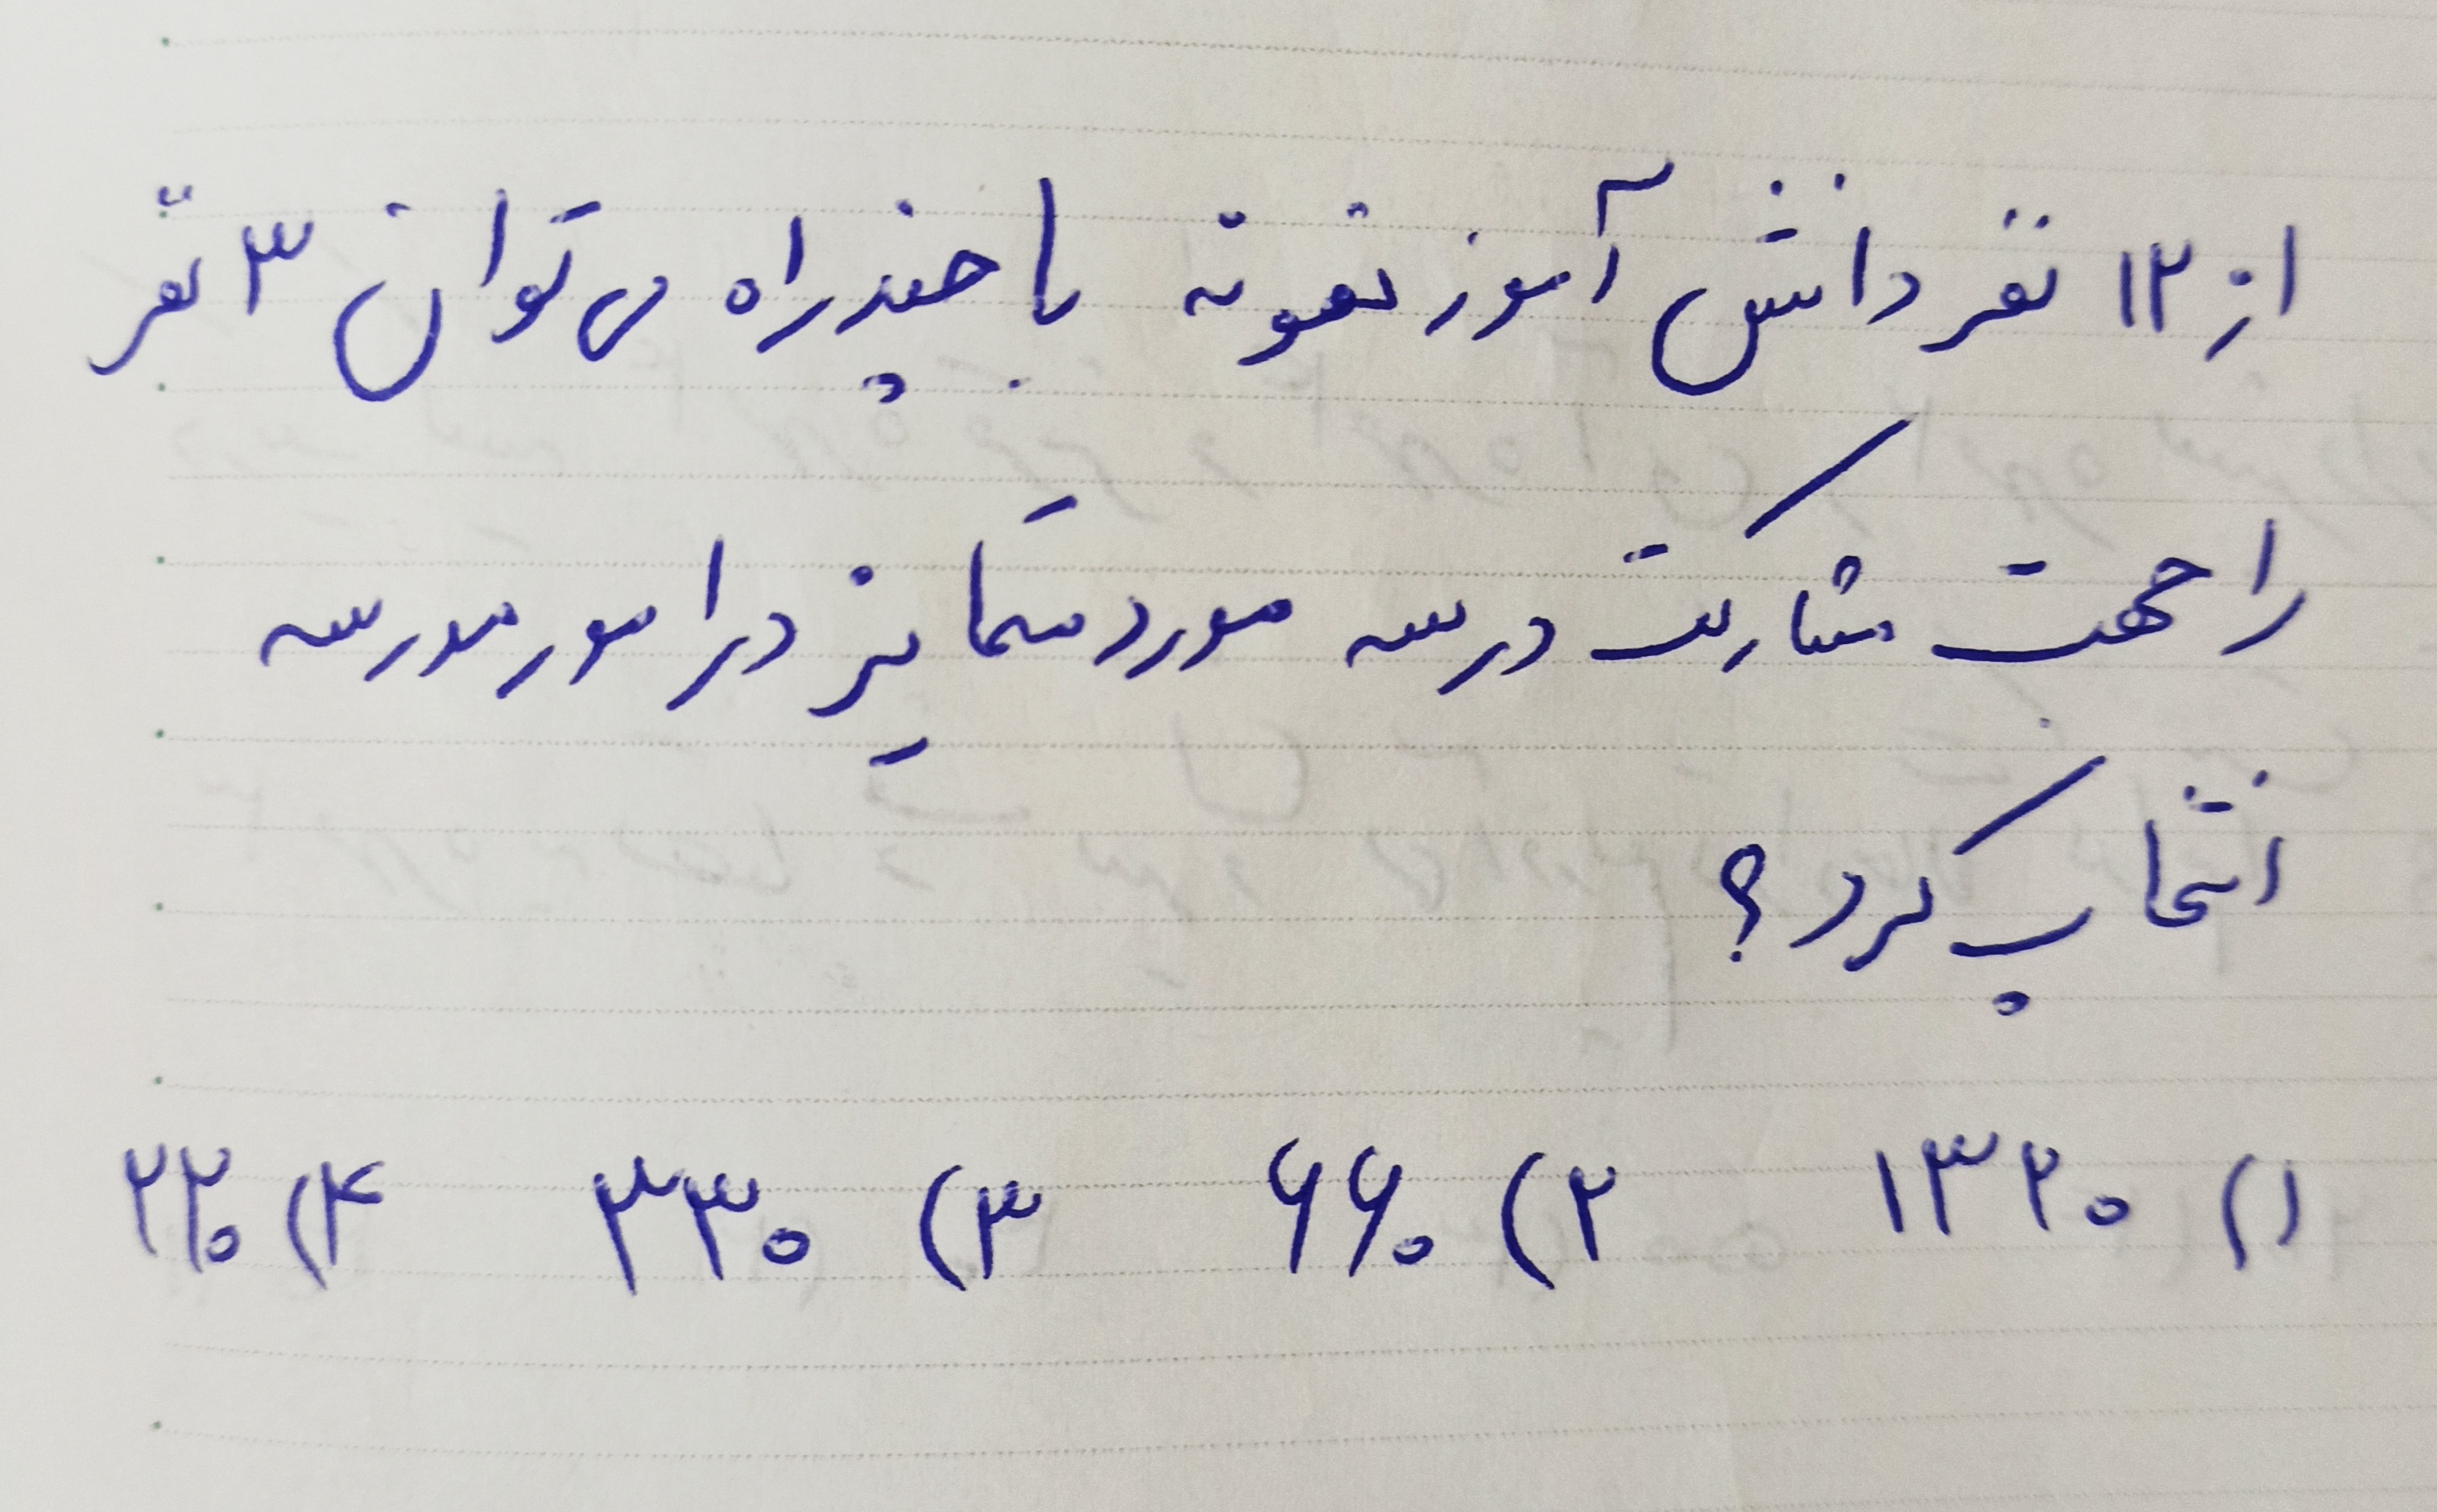 از ۱۲ نفر دانش آموز نمونه با چند راه می توان ۳ نفر
را جهت مشارکت در سه مورد متمایز در امور مدرسه
انتخاب کرد؟
۱) ۱۳۲۰ ۲) ۶۶۰ ۳) ۳۳۰ ۴) ۲۲۰